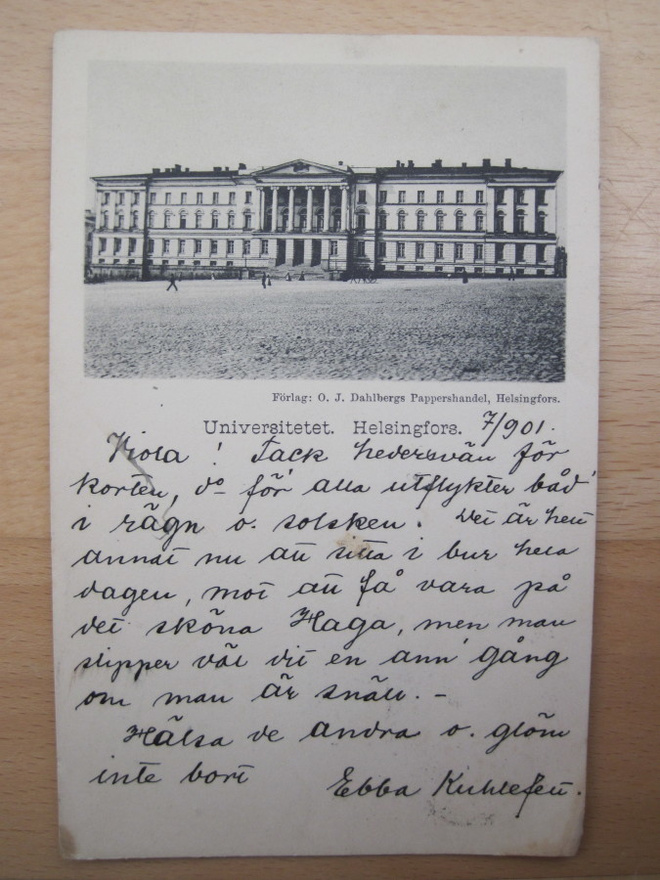 Förlag: O. J. Dahlbergs Pappershandel, Helsingfors.
Universitetet. Helsingfors. 7/901.
Viola! Tack hedersvän för
korten, do för alla utflykter båd'
i rägn o. solsken. Det är helt
annat nu att sitta i bur hela
dagen, mot att få vara på
det sköna Haga, men man
slipper väl dit en ann' gång
om man är snäll. –
Hälsa de andra o. glöm
inte bort
Ebba